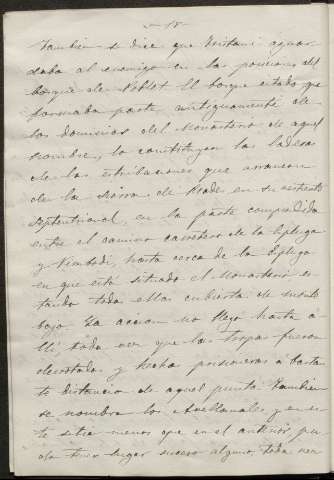 - 18 -
Tambien se dice que Tristani aguar
daba al enemigo en las posiciones del
bosque de Poblet El bosque citado que
formaba parte antiguamente de
los dominios del Monasterio de aquel
nombre, lo constituyen las laderas
de las estribaciones que arrancan
de la sierra de Prade en su vertiente
septentrional, en la parte comprendida
entre el camino carretero de la Espluga
y Vimbodi, hasta cerca de la Espluga
en que está situado el Monasterio es
tando todas ellas cubiertas de monte
bajo La accion no llegó hasta a
lli toda vez que las tropas fueron
derrotadas y hechas prisioneras á bastan
te distancia de aquel punto Tambien
se nombra los Avellanales y en es
te sitio menos que en el anterior pu
do tener lugar suceso alguno toda vez